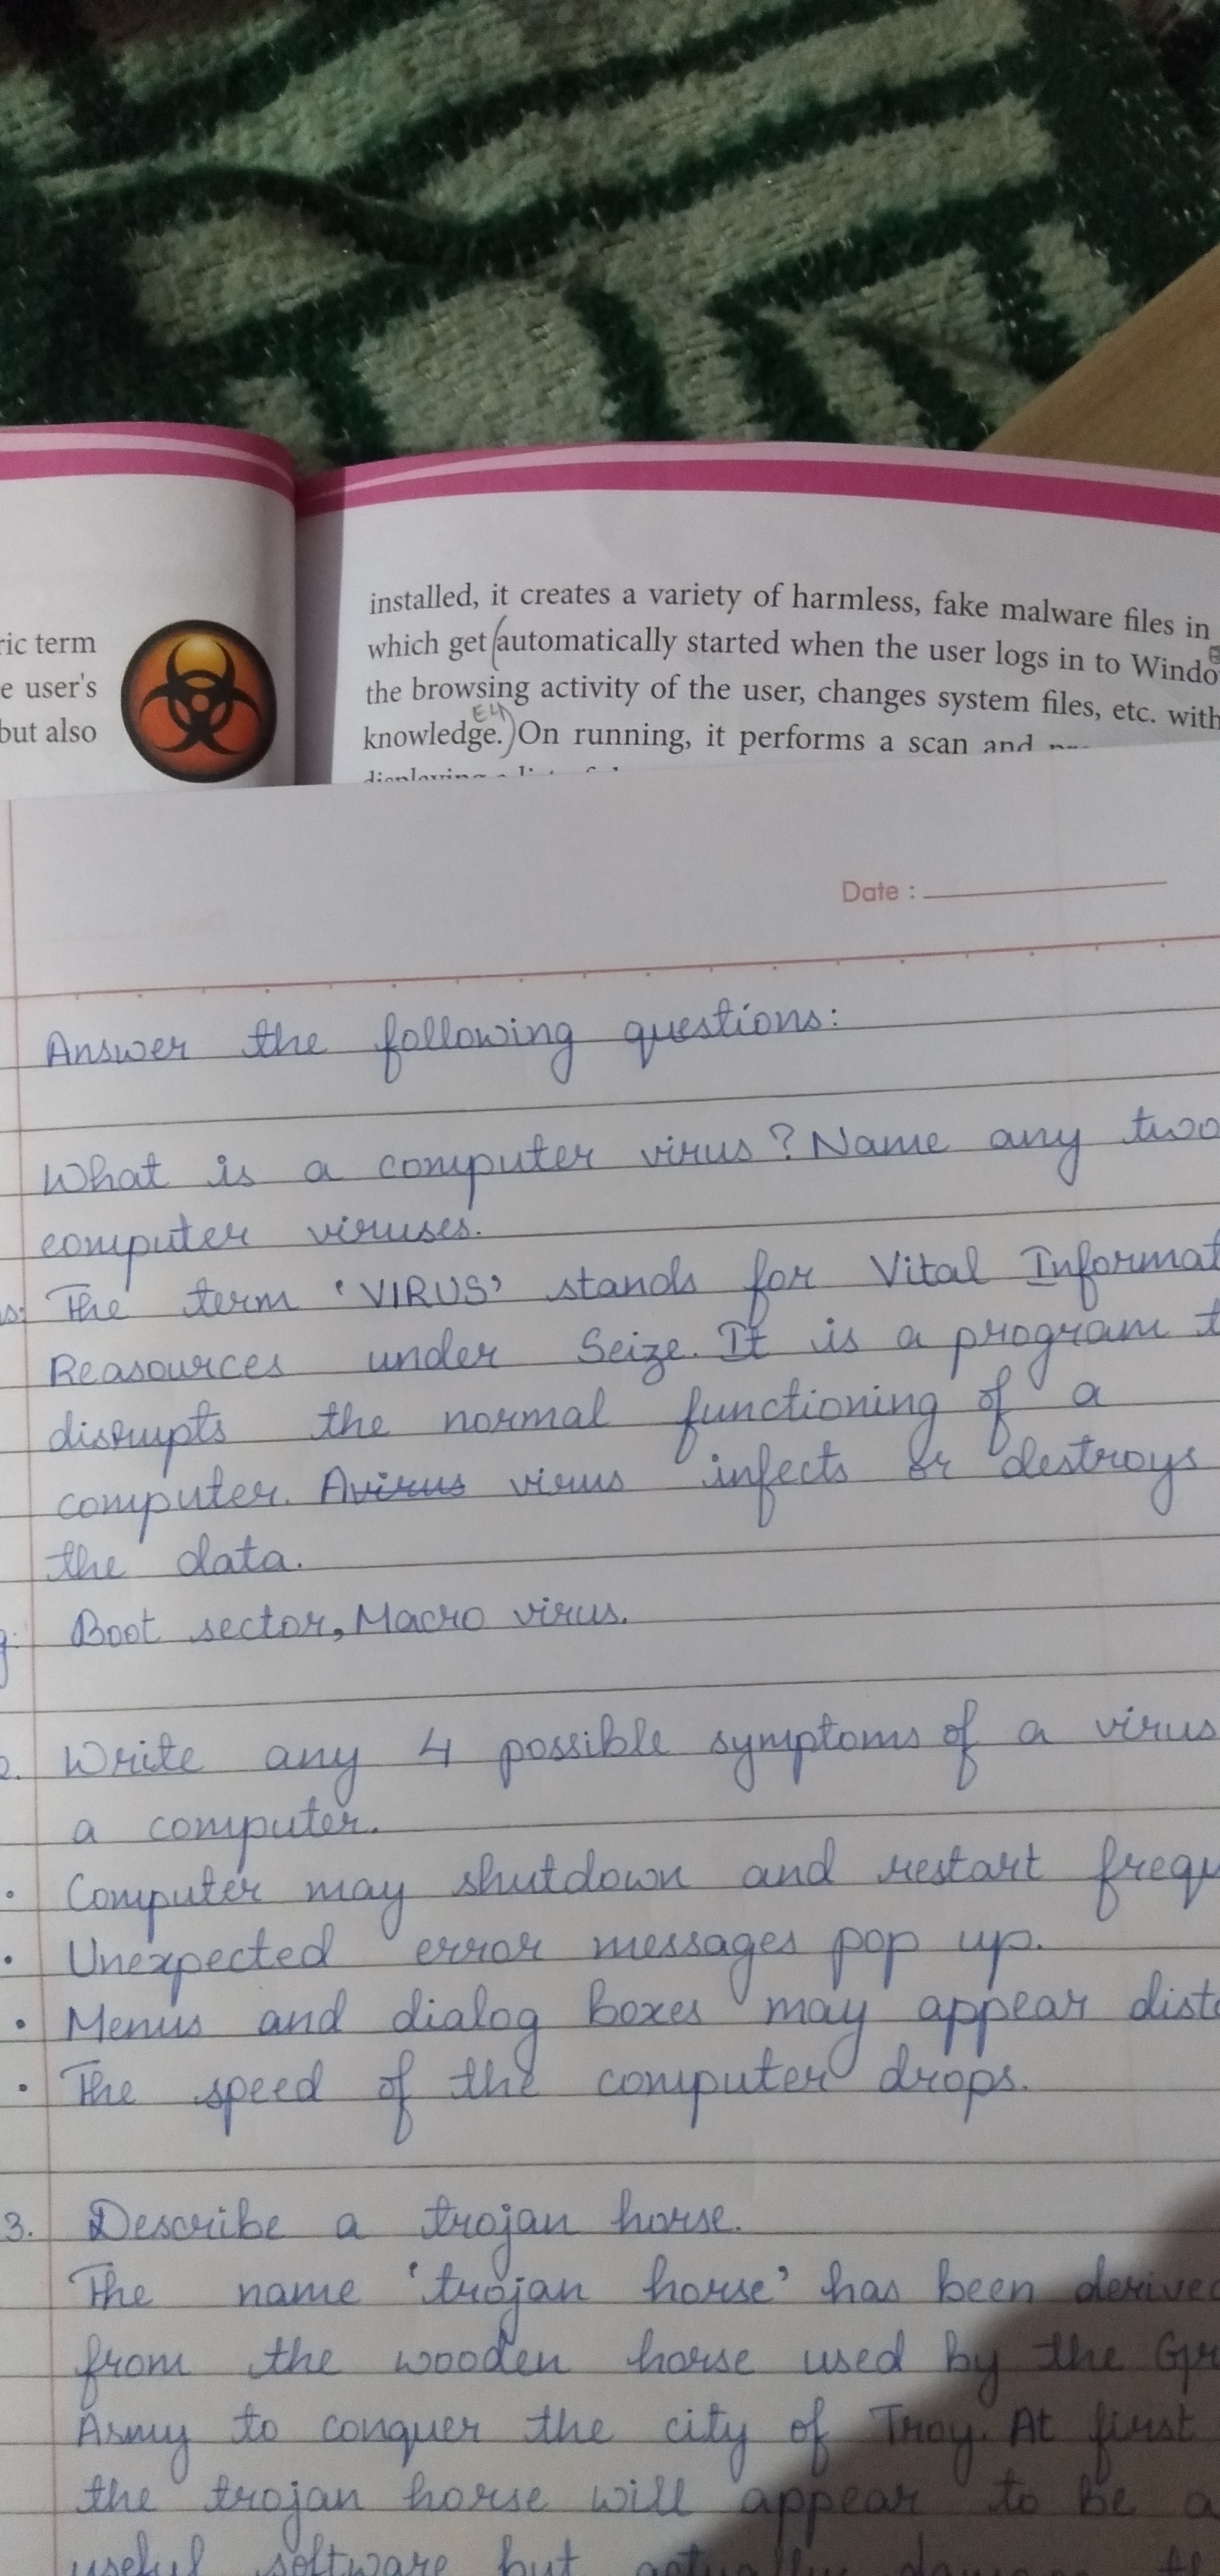 ric term
e user's
but also
installed, it creates a variety of harmless, fake malware files in
which get (automatically started when the user logs in to Windo
the browsing activity of the user, changes system files, etc. with
E4
knowledge.) On running, it performs a scan and
Date :
Answer the following questions:
What is a computer virus? Name any two
computer viruses.
s: The term 'VIRUS' stands for Vital Informat
Reasources under Seize. It is a program t
disrupts the normal functioning of a
computer. Avirus virus infects or destroys
the data.
g. Boot sector, Macro virus.
2. Write any 4 possible symptoms of a virus
a computer.
• Computer may shutdown and restart frequ
• Unexpected error messages pop up.
• Menus and dialog boxes may appear dist
• The speed of the computer drops.
3. Describe a trojan horse.
The name 'trojan horse' has been derived
from the wooden horse used by the Gr
Army to conquer the city of Troy. At first
the trojan horse will appear to be a
useful software but actually